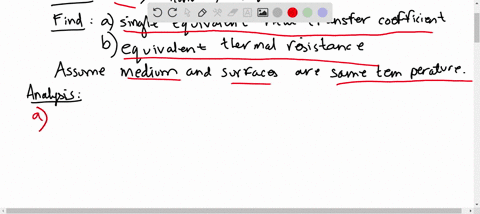 Find: a) single equivalent transfer coefficient
b) equivalent thermal resistance
Assume medium and surfaces are same temperature.
Analysis:
a)